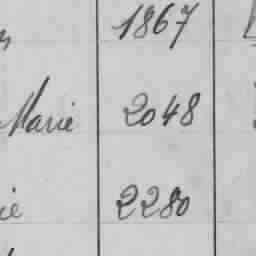 1867
Marie 2048
ie 2280